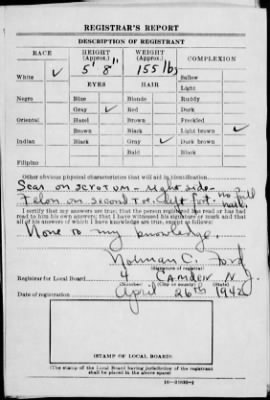 REGISTRAR'S REPORT
DESCRIPTION OF REGISTRANT
RACE HEIGHT (Approx.) WEIGHT (Approx.) COMPLEXION
White ✓ 5' 8" 155 lbs Sallow
Light
EYES HAIR
Negro Blue Blonde Ruddy
Gray ✓ Red Dark
Oriental Hazel Brown Freckled
Brown Black Light brown ✓
Indian Black Gray ✓ Dark brown
Bald Black
Filipino
Other obvious physical characteristics that will aid in identification
Scar on scrotum - right side -
Felon on second toe - left foot - no full nail.
I certify that my answers are true; that the person registered has read or has had
read to him his own answers; that I have witnessed his signature or mark and that
all of his answers of which I have knowledge are true, except as follows:
None to my knowledge.
Norman C. Ford
(Signature of registrar)
Registrar for Local Board 4 Camden N.J.
(Number) (City or county) (State)
Date of registration April 26th 1942
(STAMP OF LOCAL BOARD)
(The stamp of the Local Board having jurisdiction of the registrant
shall be placed in the above space)